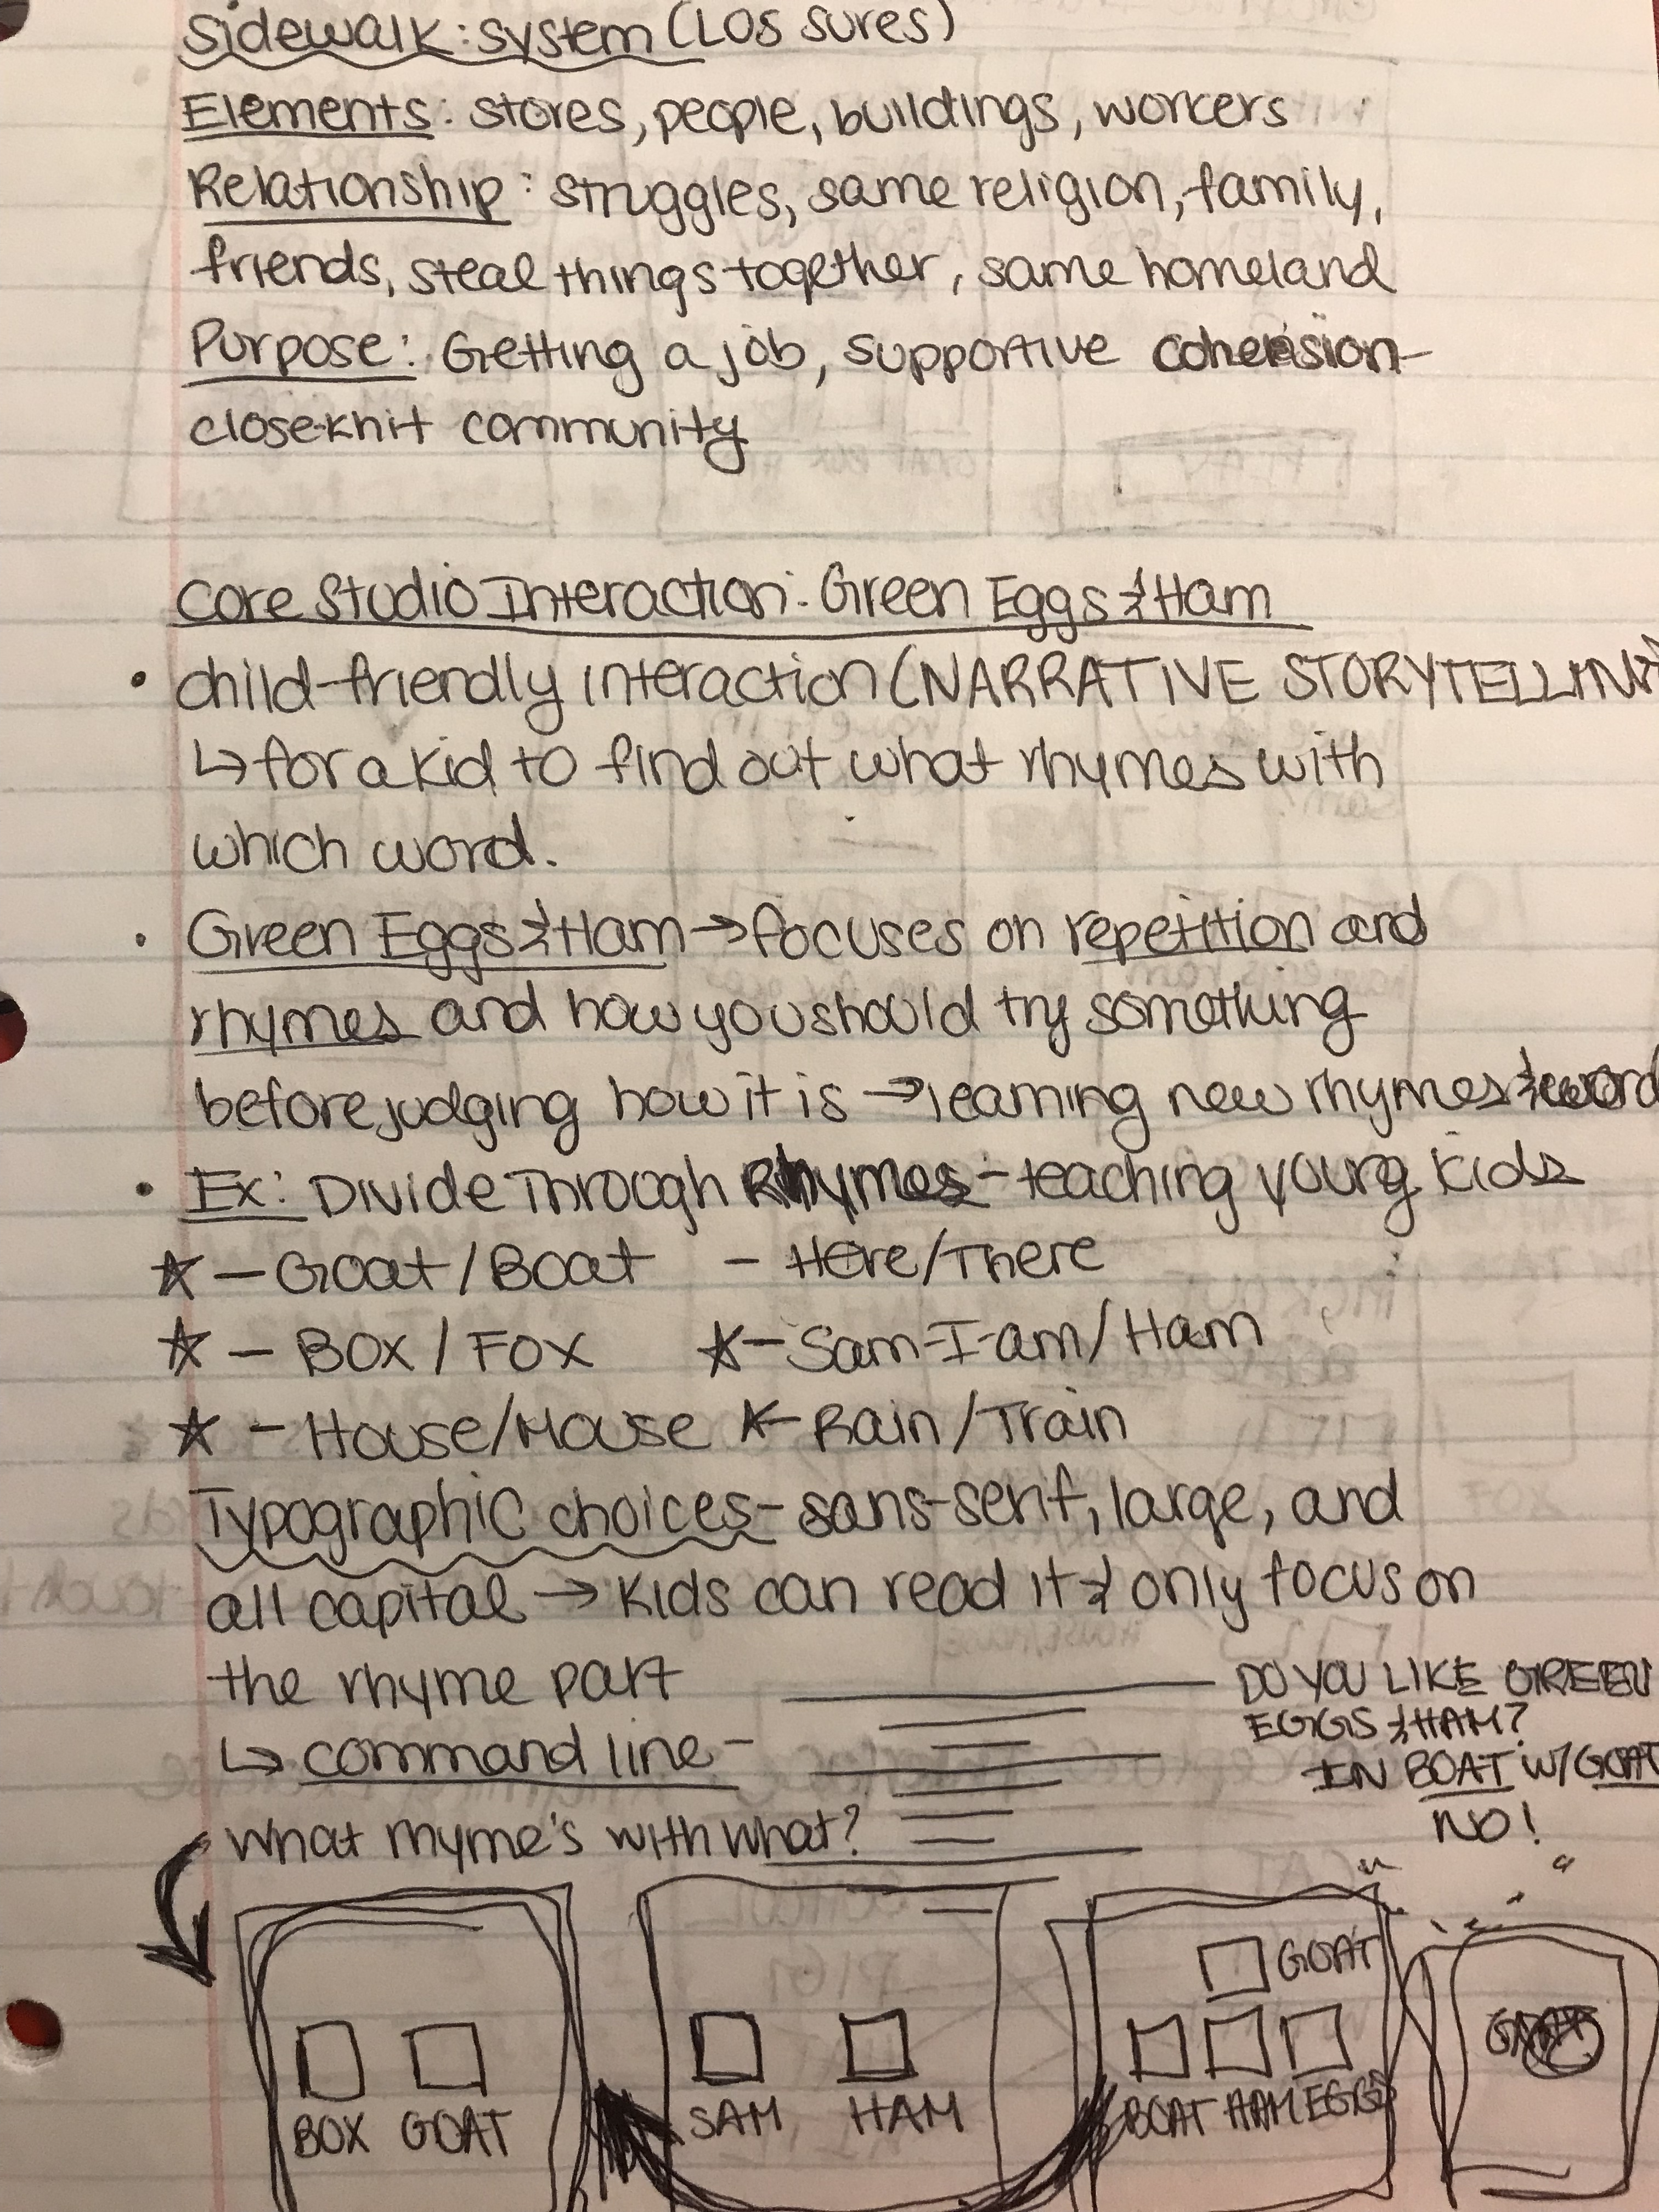 Sidewalk: system (Los Sures)
Elements: stores, people, buildings, workers
Relationship: struggles, same religion, family,
friends, steal things together, same homeland
Purpose: Getting a job, supportive cohension-
close-knit community
Core Studio Interaction: Green Eggs & Ham
• child-friendly interaction (NARRATIVE STORYTELLING)
↳ for a kid to find out what rhymes with
which word.
• Green Eggs & Ham → focuses on repetition and
rhymes and how you should try something
before judging how it is → learning new rhymes & word
• Ex: Divide Through Rhymes - teaching young kids
☆ - Goat / Boat - Here/There
☆ - Box / Fox ☆ - Sam-I-am / Ham
☆ - House/Mouse ☆ - Rain / Train
Typographic choices - sans-serif, large, and
all capital → kids can read it & only focus on
the rhyme part
↳ command line -
What rhyme's with what?
DO YOU LIKE GREEN
EGGS & HAM?
IN BOAT W/ GOAT
NO!
BOX GOAT
SAM HAM
GOAT
BOAT HAM EGGS